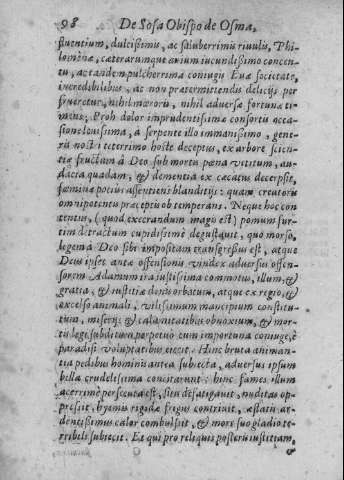 98 De Sosa Obispo de Osma,
fluentium, dulcissimis, ac saluberrimis riuulis, Phi-
lomenæ, cæterarumque auium iucundissimo concen-
tu, ac tandem pulcherrima coniugis Euæ societate,
incredibilibus, ac non prætermittendis delicijs per
frueretur, nihil mœroris, nihil aduersæ fortunæ ti
mens: Proh dolor imprudentissimæ consortis occa
sione leuissima, a serpente illo immanissimo, gene-
ris nostri teterrimo hoste deceptus, ex arbore scien-
tiæ fructum à Deo sub mortis pœna vetitum, au-
dacia quadam, & dementia excæcatus decerpsit,
fœminæ potius assentiens blanditijs: quam creatoris
omnipotentis præceptis obtemperans. Neque hoc con
tentus, (quod execrandum magis est) pomum fur-
tim detractum cupidissimè degustauit, quo morso,
legem à Deo sibi impositam transgressus est, atque
Deus ipse antæ offensionis vindex aduersus offen-
sorem Adamum ira iustissima commotus, illum, &
gratia, & iustitiæ donis orbatum, atque ex regio, &
excelso animali, vilissimum mancipium constitu-
tum, miserijs & calamitatibus obnoxium, & mor-
tis legi subditum perpetuò cum importuna coniuge, è
paradisi voluptatibus eiecit. Hinc bruta animan-
tia pedibus hominis antea subiecta, aduersus ipsum
bella crudelissima concitarunt: hinc fames illum
acerrimè persecuta est, sitis defatigauit, nuditas op-
pressit, hyemis rigidæ frigus contriuit, æstatis ar-
dentissimus calor combussit, & mors suo gladio te-
rribili subiecit. Et qui pro reliquis posteris iustitiam,
&